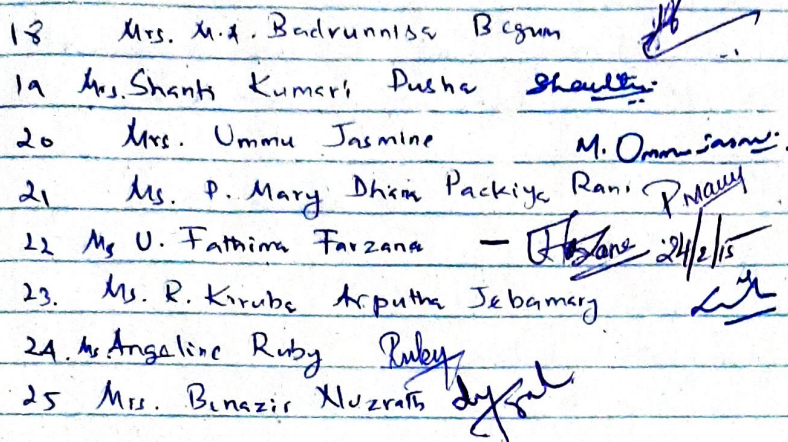 18 Mrs. M.A. Badrunnisa Begum
19 Mrs. Shanti Kumari Pusha Shanthi
20 Mrs. Ummu Jasmine M. Ommu
21 Ms. P. Mary Dhina Packiya Rani P Mary
22 Ms U. Fathima Farzana - 24/2/15
23. Ms. R. Kiruba Arputha Jebamary
24. Ms. Angeline Ruby Ruby
25 Mrs. Benazir Nuzrath